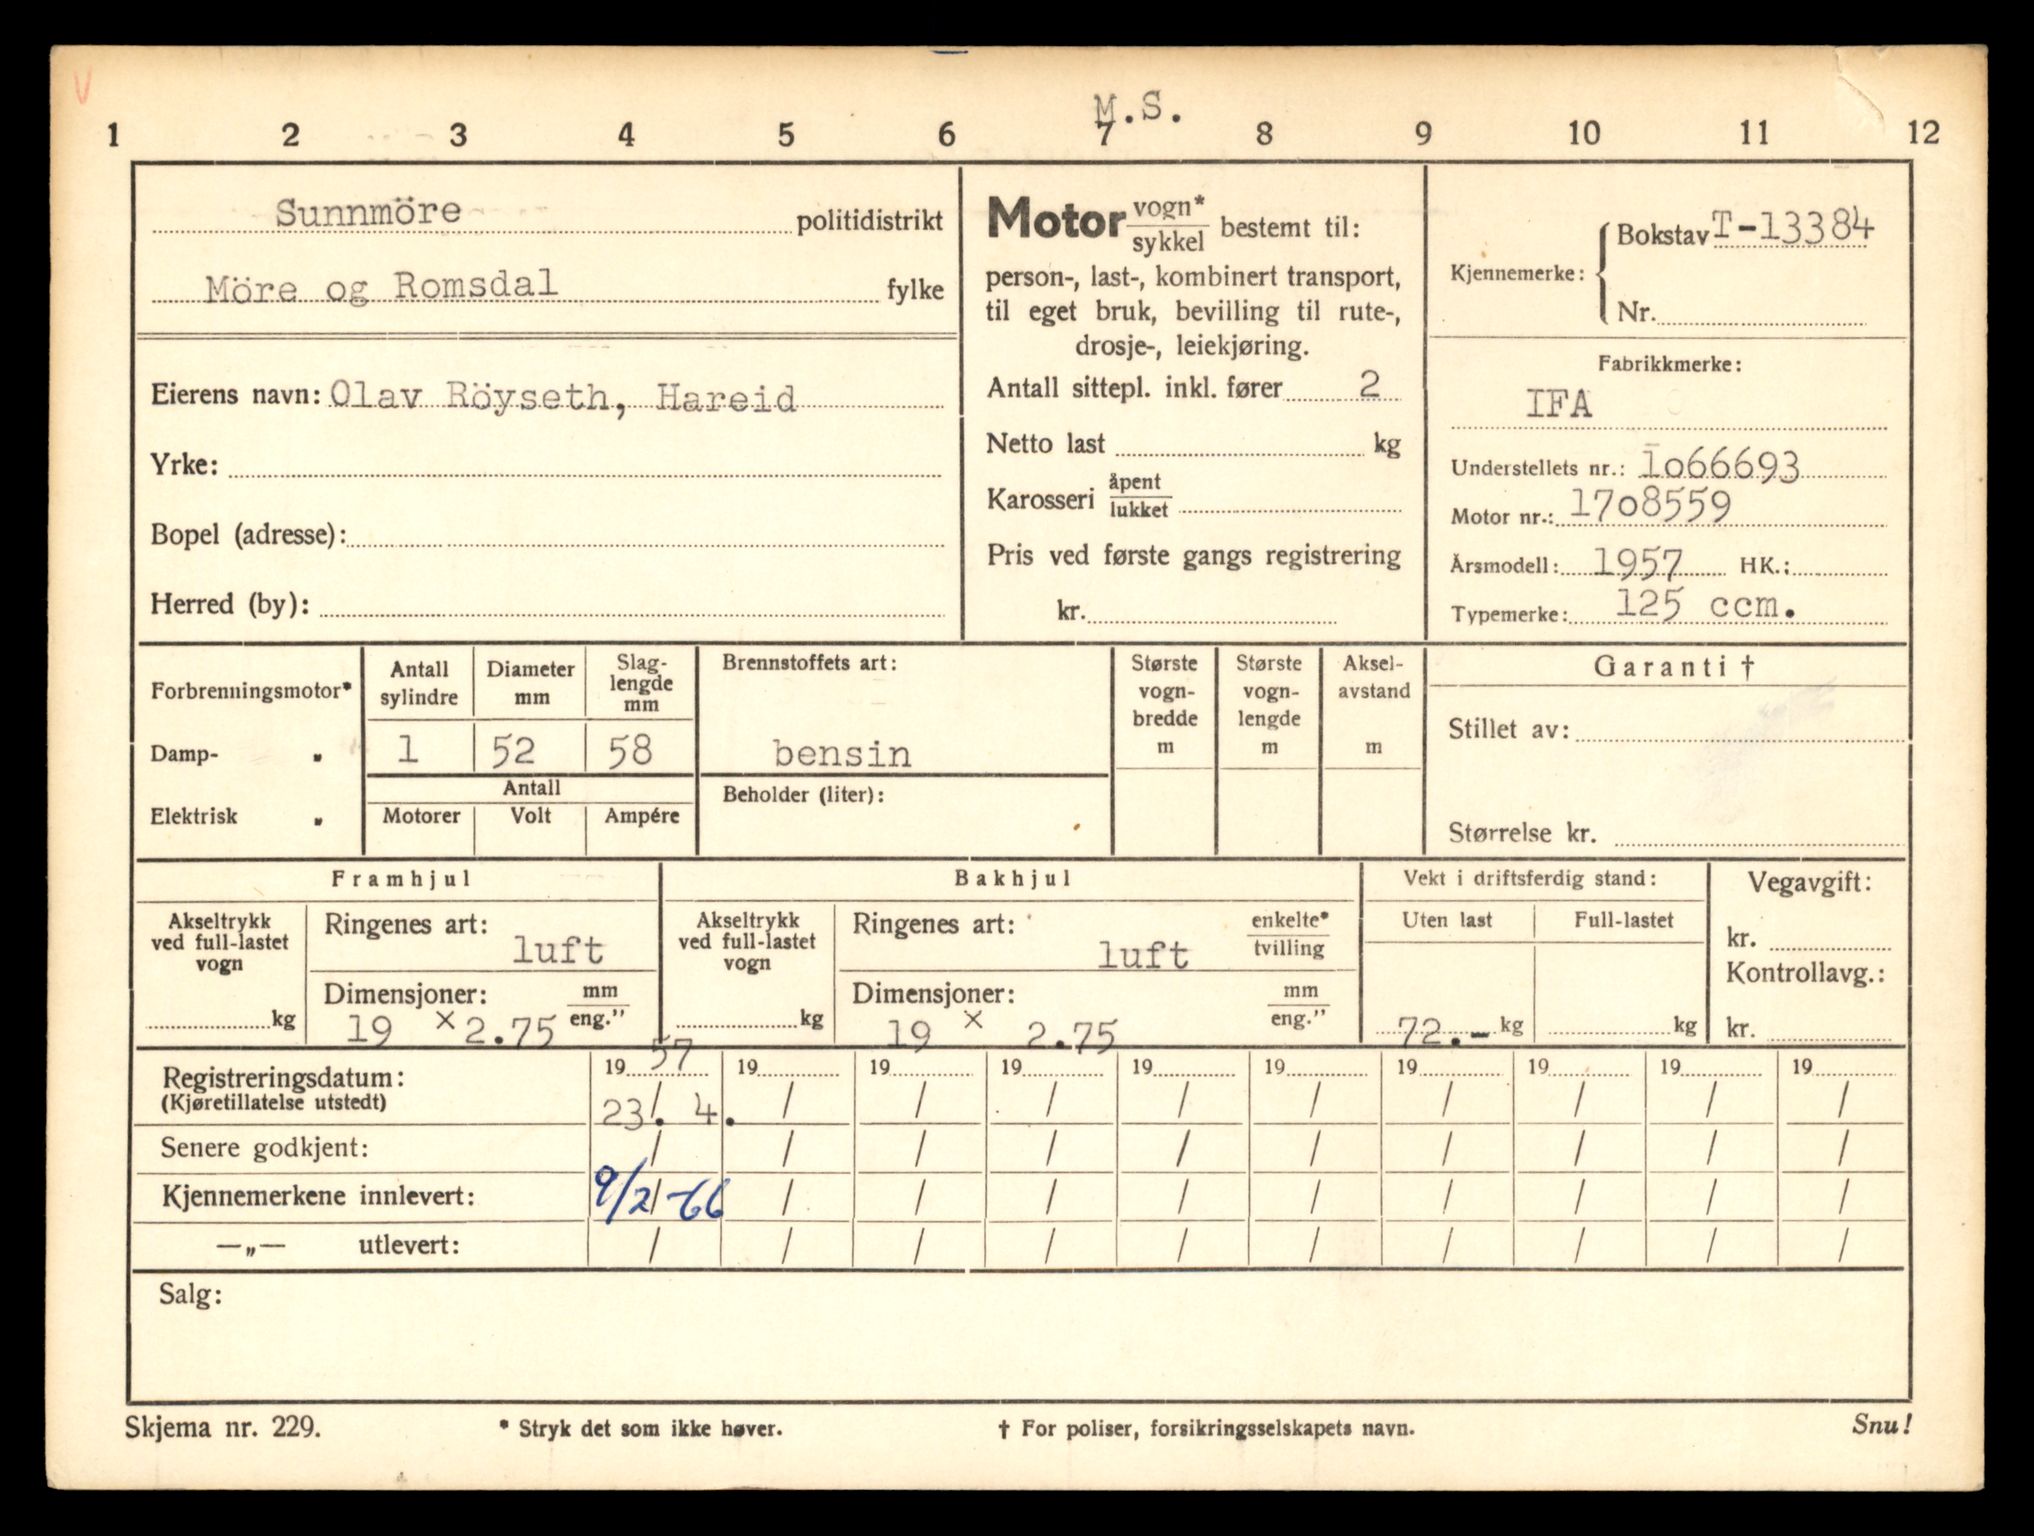 V
M.S.
1 2 3 4 5 6 7 8 9 10 11 12
Sunnmöre politidistrikt
Möre og Romsdal fylke
Eierens navn: Olav Röyseth, Hareid
Yrke:
Bopel (adresse):
Herred (by):
Motor vogn* / sykkel bestemt til:
person-, last-, kombinert transport,
til eget bruk, bevilling til rute-,
drosje-, leiekjøring.
Antall sittepl. inkl. fører 2
Netto last kg
Karosseri åpent / lukket
Pris ved første gangs registrering
kr.
Kjennemerke: { Bokstav T-13384
Nr.
Fabrikkmerke:
IFA
Understellets nr.: 1o66693
Motor nr.: 17o8559
Årsmodell: 1957 HK.:
Typemerke: 125 ccm.
Forbrenningsmotor*
Damp- „
Elektrisk „
Antall sylindre
Diameter mm
Slag-lengde mm
1 52 58
Antall
Motorer Volt Ampére
Brennstoffets art:
bensin
Beholder (liter):
Største vogn-bredde m
Største vogn-lengde m
Aksel-avstand m
Garanti †
Stillet av:
Størrelse kr.
Framhjul
Akseltrykk ved full-lastet vogn
kg
Ringenes art:
luft
Dimensjoner: mm / eng.”
19 × 2.75
Bakhjul
Akseltrykk ved full-lastet vogn
kg
Ringenes art: enkelte* / tvilling
luft
Dimensjoner: mm / eng.”
19 × 2.75
Vekt i driftsferdig stand:
Uten last Full-lastet
72.- kg kg
Vegavgift:
kr.
Kontrollavg.:
kr.
Registreringsdatum: 1957 19 19 19 19 19 19 19 19 19
(Kjøretillatelse utstedt) 23/. 4. / / / / / / / / /
Senere godkjent: / / / / / / / / / /
Kjennemerkene innlevert: 9/2 -66 / / / / / / / / /
—„— utlevert: / / / / / / / / / /
Salg:
Skjema nr. 229. * Stryk det som ikke høver. † For poliser, forsikringsselskapets navn. Snu!